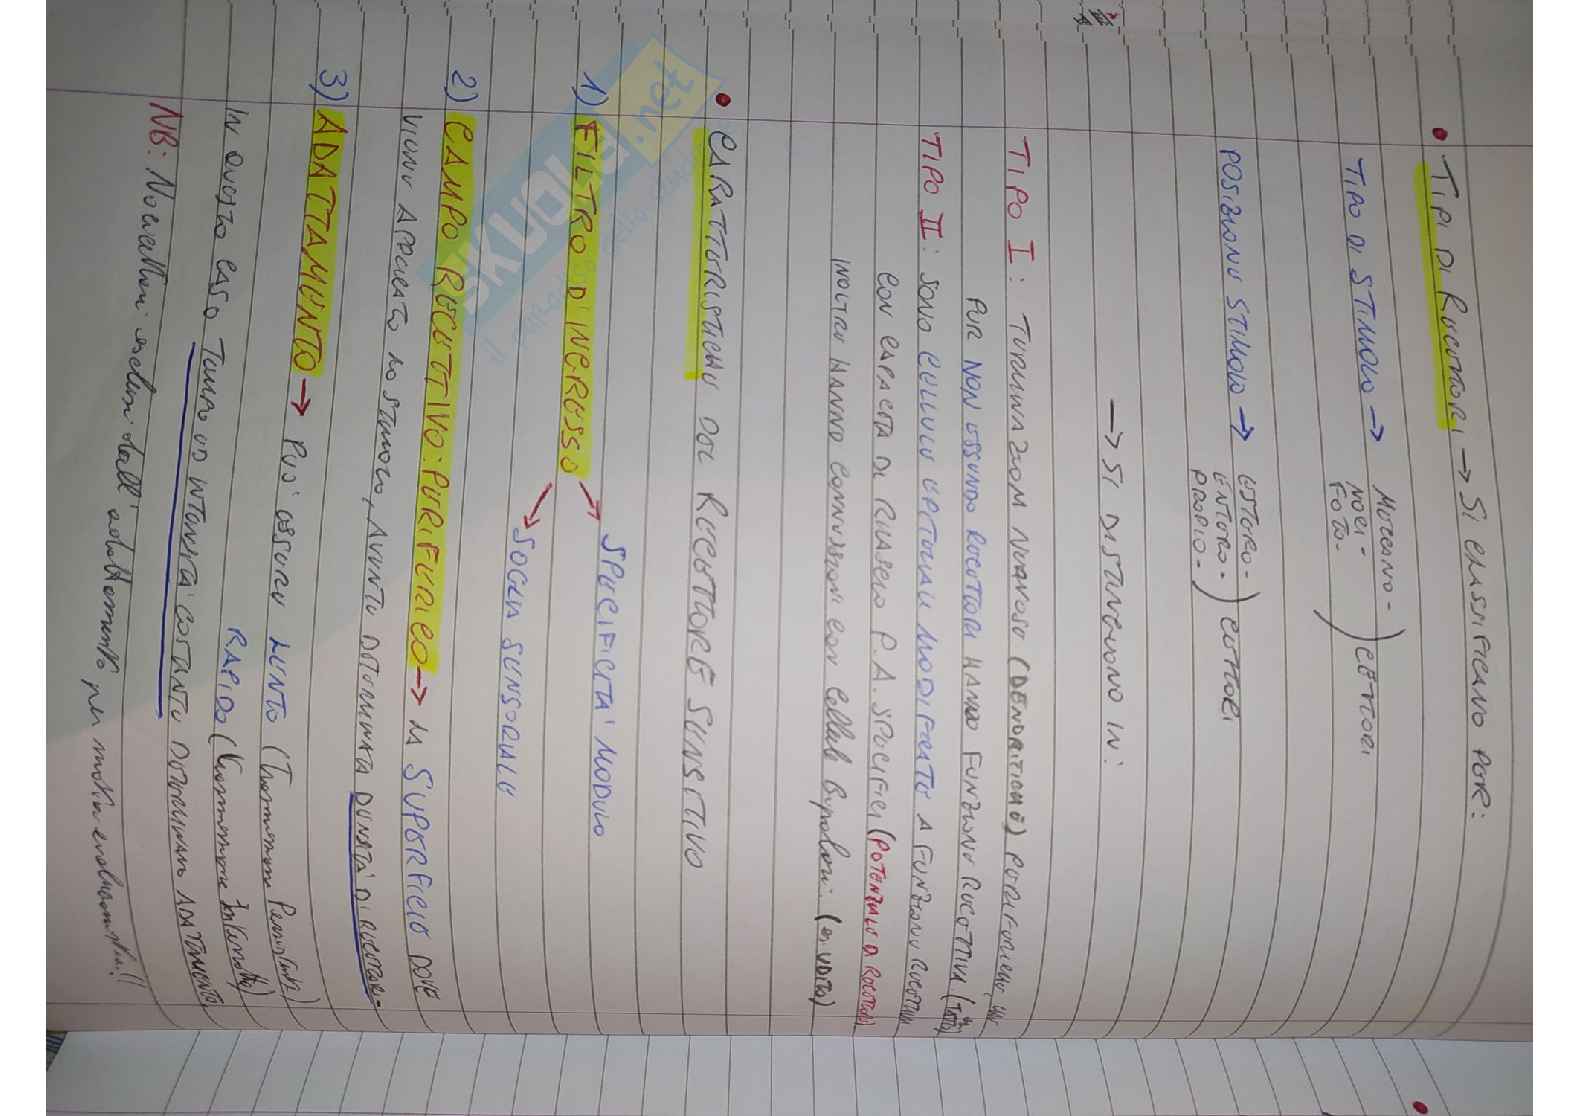 • TIPI DI RECETTORI → SI CLASSIFICANO PER:
TIPO DI STIMOLO → MECCANO -
NOCI -
FOTO -
) CETTORI
POSIZIONE STIMOLO → ESTERO -
ENTERO -
PROPIO -
) CETTORI
→ SI DISTINGUONO IN:
TIPO I: TERMINAZIONI NERVOSE (DENDRITICHE) PERIFERICHE, CHE
PUR NON ESSENDO RECETTORI HANNO FUNZIONE RECETTIVA (TATTO)
TIPO II: SONO CELLULE EPITELIALI MODIFICATE A FUNZIONE RECETTIVA
CON CAPACITÀ DI RILASCIO P.A. SPECIFICI (POTENZIALE DI RECETTORE)
INOLTRE HANNO CONNESSIONI CON CELLULE BIPOLARI. (ES UDITO)
• CARATTERISTICHE DEL RECETTORE SENSITIVO
1) FILTRO D'INGRESSO → SPECIFICITÀ MODULO
→ SOGLIA SENSORIALE
2) CAMPO RECETTIVO: PERIFERICO → LA SUPERFICIE DOVE
VIENE APPLICATO LO STIMOLO, AVENTE DETERMINATA DENSITÀ DI RECETTORI -
3) ADATTAMENTO → PUÒ ESSERE LENTO (Trasmissione Persistente)
RAPIDO (Trasmissione Intensità)
IN QUESTO CASO TEMPO ED INTENSITÀ COSTANTE DETERMINANO ADATTAMENTO
NB: Nocicettori esclusi dall'adattamento per motivi evoluzionistici!!
skuola.net